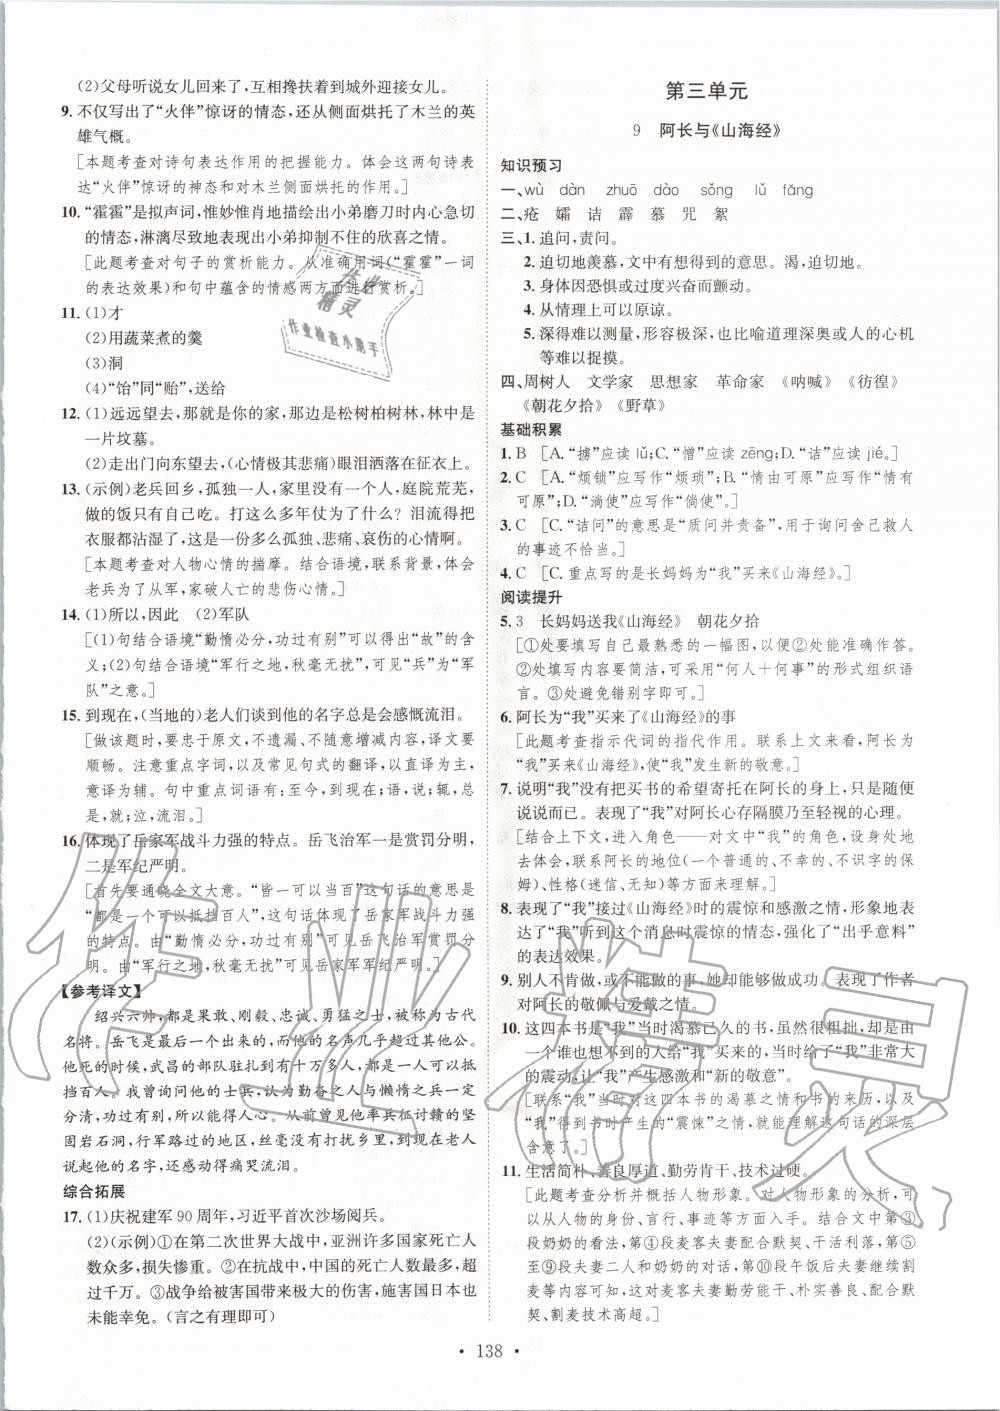 (2)父母听说女儿回来了,互相搀扶着到城外迎接女儿。
9. 不仅写出了“火伴”惊讶的情态,还从侧面烘托了木兰的英
雄气概。
[本题考查对诗句表达作用的把握能力。体会这两句诗表
达“火伴”惊讶的神态和对木兰侧面烘托的作用。]
10. “霍霍”是拟声词,惟妙惟肖地描绘出小弟磨刀时内心急切
的情态,淋漓尽致地表现出小弟抑制不住的欣喜之情。
[此题考查对句子的赏析能力。从准确用词(“霍霍”一词
的表达效果)和句中蕴含的情感两方面进行赏析。]
11. (1)才
(2)用蔬菜煮的羹
(3)洞
(4)“饴”同“贻”,送给
12. (1)远远望去,那就是你的家,那边是松树柏树林,林中是
一片坟墓。
(2)走出门向东望去,(心情极其悲痛)眼泪洒落在征衣上。
13. (示例)老兵回乡,孤独一人,家里没有一个人,庭院荒芜,
做的饭只有自己吃。打这么多年仗为了什么?泪流得把
衣服都沾湿了,这是一份多么孤独、悲痛、哀伤的心情啊。
[本题考查对人物心情的揣摩。结合语境,联系背景,体会
老兵为了从军,家破人亡的悲伤心情。]
14. (1)所以,因此 (2)军队
[(1)句结合语境“勤惰必分,功过有别”可以得出“故”的
含义;(2)句结合语境“军行之地,秋毫无扰”,可感“兵”为“军
队”之意。]
15. 到现在,(当地的)老人们谈到他的名字总是会感慨流泪。
[做该题时,要忠于原文,不遗漏、不随意增减内容,译文要
顺畅。注意重点字词,以及常见句式的翻译,以直译为主,
意译为辅。句中重点词语有:至今;语,说;辄,就,总
是,就;泣,流泪。]
16. 体现了岳家军战斗力强的特点。岳飞治军一是赏罚分明,
二是军纪严明。
[首先要通晓全文大意。“皆一可以当百”这句话的意思是
“都是一个可以抵挡百人”,这句话体现了岳家军战斗力强
的特点。由“勤惰必分,功过有别”可见岳飞治军赏罚分
明。由“军行之地,秋毫无扰”可见岳飞治军军纪严明。]
【参考译文】
绍兴六帅,都是果敢、刚毅、忠诚、勇猛之士,被称为古代
名将。岳飞是最后一个出来的,而他的名声几乎超过其他公。
他死的时候,武昌的部队驻扎到有十万多人,一人可以抵
挡百人。我曾询问他的士兵,为勤奋之人与懒惰之人一定
分清,功过有别,所以能得人心。从前见他率兵征讨赣的坚
固岩石洞,行军路过的地区,丝毫无打扰乡里,到现在老人
说起他的名字,还感动得痛哭流泪。
综合拓展
17. (1)庆祝建军90周年,习近平首次沙场阅兵。
(2)(示例)①在第二次世界大战中,亚洲许多国家死亡人
数众多,损失惨重。②在抗日战争中,中国的死亡人数超过
千万。③战争给被害国带来极大的伤害,施害国日本也不
能幸免。(言之有理即可)
第三单元
9 阿长与《山海经》
知识预习
一、wù dàn zhuō dào sǒng lǔ fāng
二、疮 孀 诘 霹 慕 咒 絮
三、1. 追问,责问。
2. 迫切地羡慕,文中有想得到的意思。渴,迫切地。
3. 身体因恐惧或过度兴奋而颤动。
4. 从情理上可以原谅。
5. 深得难以测量,形容极深,也比喻道理深奥或人的心机
等难以捉摸。
四、周树人 文学家 思想家 革命家 《呐喊》 《彷徨》
《朝花夕拾》 《野草》
基础积累
1. B [A.“掳”应读lǔ;C.“憎”应读zēng;D.“诘”应读jié。]
2. C [A.“烦锁”应写作“烦琐”;B.“情由可原”应写作“情有
可原”;D.“淌使”应写作“倘使”。]
3. C [C.“诘问”的意思是“质问并责备”,用于询问舍己救人
的事迹不恰当。]
4. C [C. 重点写的是长妈妈为“我”买来《山海经》。]
阅读提升
5. 3 长妈妈送我《山海经》 朝花夕拾
[①处要填写自己最熟悉的一幅图,以便能准确作答。
②处填写内容要简洁,可采用“何人+何事”的形式组织语
言。③处避免错别字即可。]
6. 阿长为“我”买来了《山海经》的事
[此题考查指示代词的指代作用。联系上文来看,阿长为
“我”买来《山海经》,使“我”发生新的敬意。]
7. 说明“我”没有把买书的希望寄托在阿长的身上,只是随便
说说而已。表现了“我”对阿长心存隔膜乃至轻视的心理。
[结合上下文,进入角色——对文中“我”的角色,设身处地
去体会,联系阿长的地位(一个普通的、不幸的、不识字的保
姆)、性格(迷信、无知)等方面来理解。]
8. 表现了“我”接过《山海经》时的震惊和感激之情,形象地表
达了“我”听到这个消息时震惊的情态,强化了“出乎意料”
的表达效果。
9. 别人不肯做,或不能做的事,她却能够做成功。表现了作者
对阿长的敬佩与爱戴之情。
10. 这四本书是“我”当时渴慕已久的书,虽然很粗拙,却是由
一个谁也想不到的人去给“我”买来的,当时给了“我”非常大
的震动,让“我”产生感激和“新的敬意”。
[联系“我”当时对这四本书的渴慕之情和书的来历,以及
“我”得到书时产生的“震悚”之情,就能理解这句话的深层
含意了。]
11. 生活简朴、善良厚道、勤劳肯干、技术过硬。
[此题考查分析并概括人物形象。对人物形象的分析,可
以从人物的身份、言行、事迹等方面入手。结合文中第③
段奶奶的看法,第④段麦客夫妻配合默契、干活利落,第⑤
至⑨段麦客夫妻二人和奶奶的对话,第⑩段午饭后夫妻继续
割麦等内容,可概括出麦客夫妻勤劳能干、善良忠厚、配合默
契、割麦技术高超。]
• 138 •
作业
精灵
作业检查小助手
作业精灵